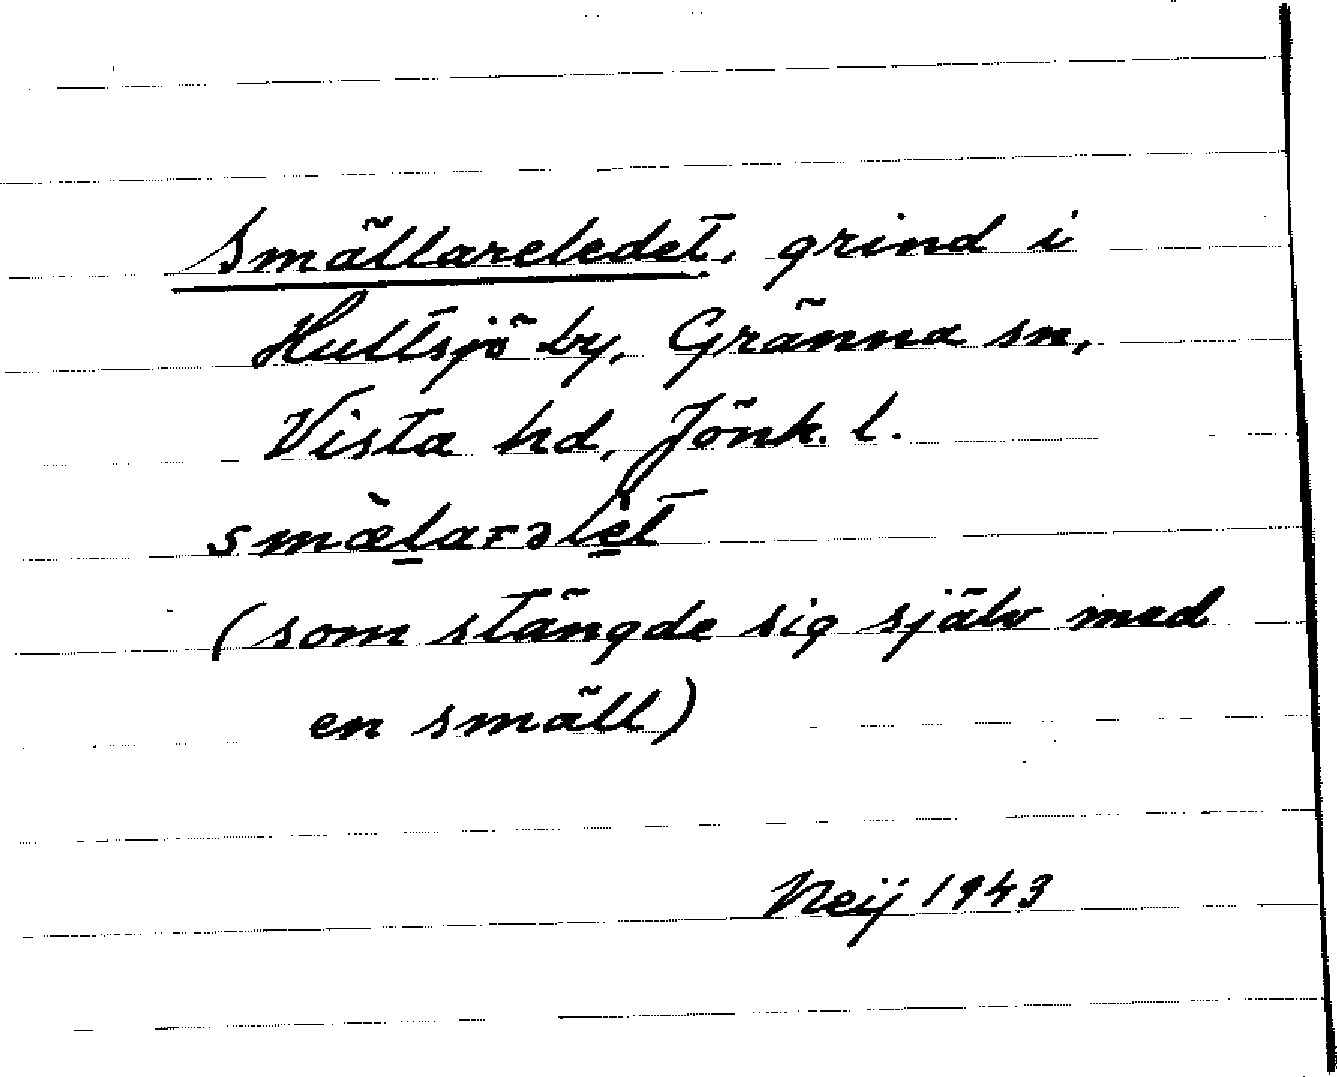 Smällareledet, grind i
Hultsjö by, Gränna sn,
Vista hd, Jönk. l.
smæ̀l̠arəlė̠t
(som stängde sig själv med
en smäll)
Neij 1943